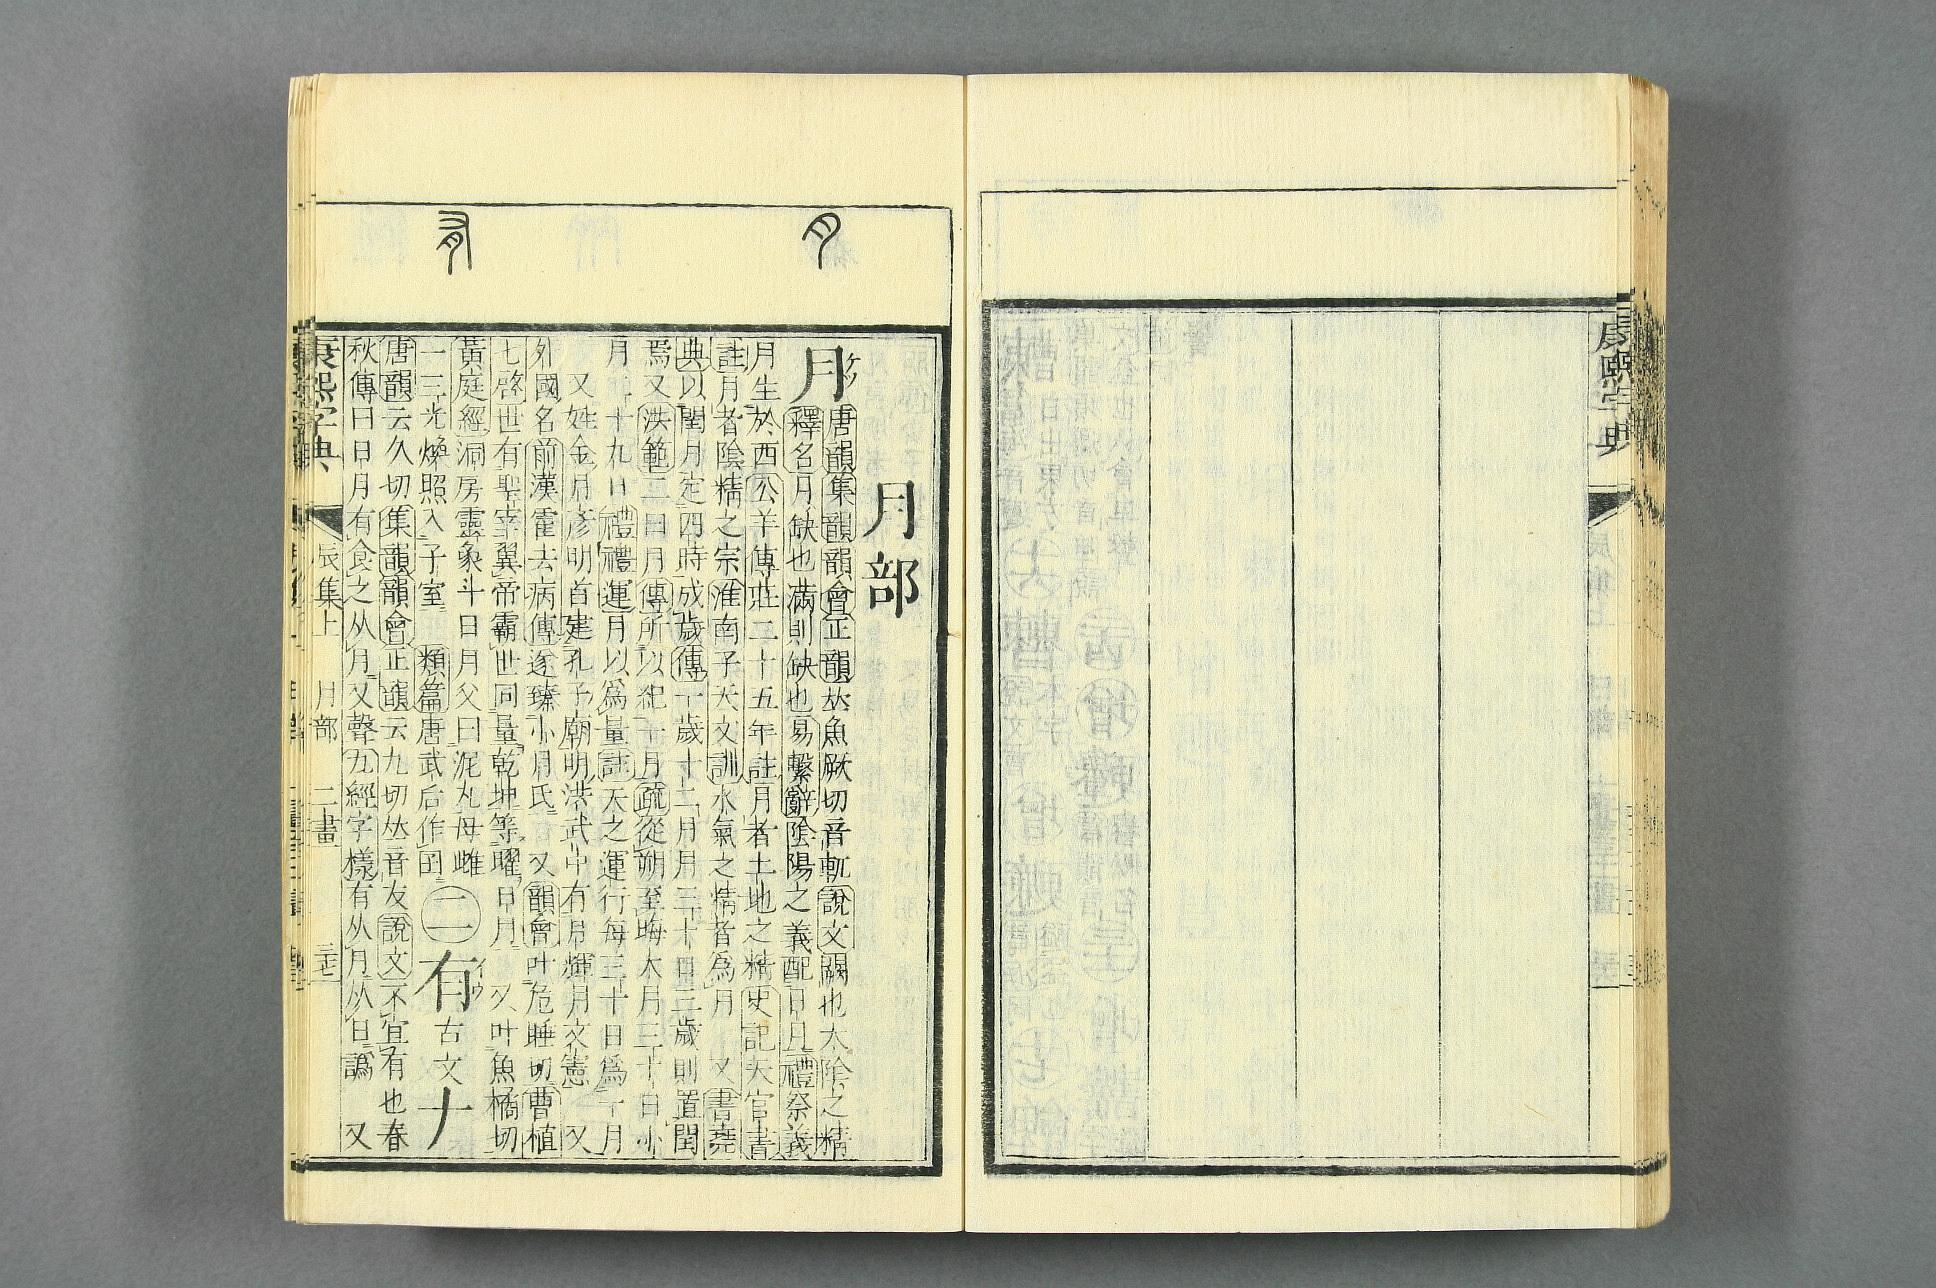 康熙字典
月部
月
ケツ
唐韻集韻韻會正韻𠀤魚厥切音軏說文闕也太陰之精
釋名月缺也滿則缺也易繫辭陰陽之義配日月禮祭義
月生於西公羊傳莊二十五年註月者土地之精史記天官書
註月者陰精之宗淮南子天文訓水氣之精者為月 又書堯
典以閏月定四時成歲傳一歲十二月月三十日三歲則置閏
焉又洪範二曰月傳所以紀一月疏從朔至晦大月三十日小
月二十九日禮禮運月以為量註天之運行每三十日為一月
又姓金月彥明首建孔子廟明洪武中有月輝月文憲 又
外國名前漢霍去病傳遂臻小月氏 又韻會叶危睡切曹植
七啓世有聖宰翼帝霸世同量乾坤等曜日月 又叶魚橘切
黃庭經洞房靈象斗日月父曰泥丸母雌
一三光煥照入子室 類篇唐武后作囝 二 有 古文 𠂇
イウ
唐韻云久切集韻韻會正韻云九切𠀤音友說文不宜有也春
秋傳曰日月有食之从月又聲九經字樣有从月从日譌 又
康熙字典 辰集上 月部 二畫 三七